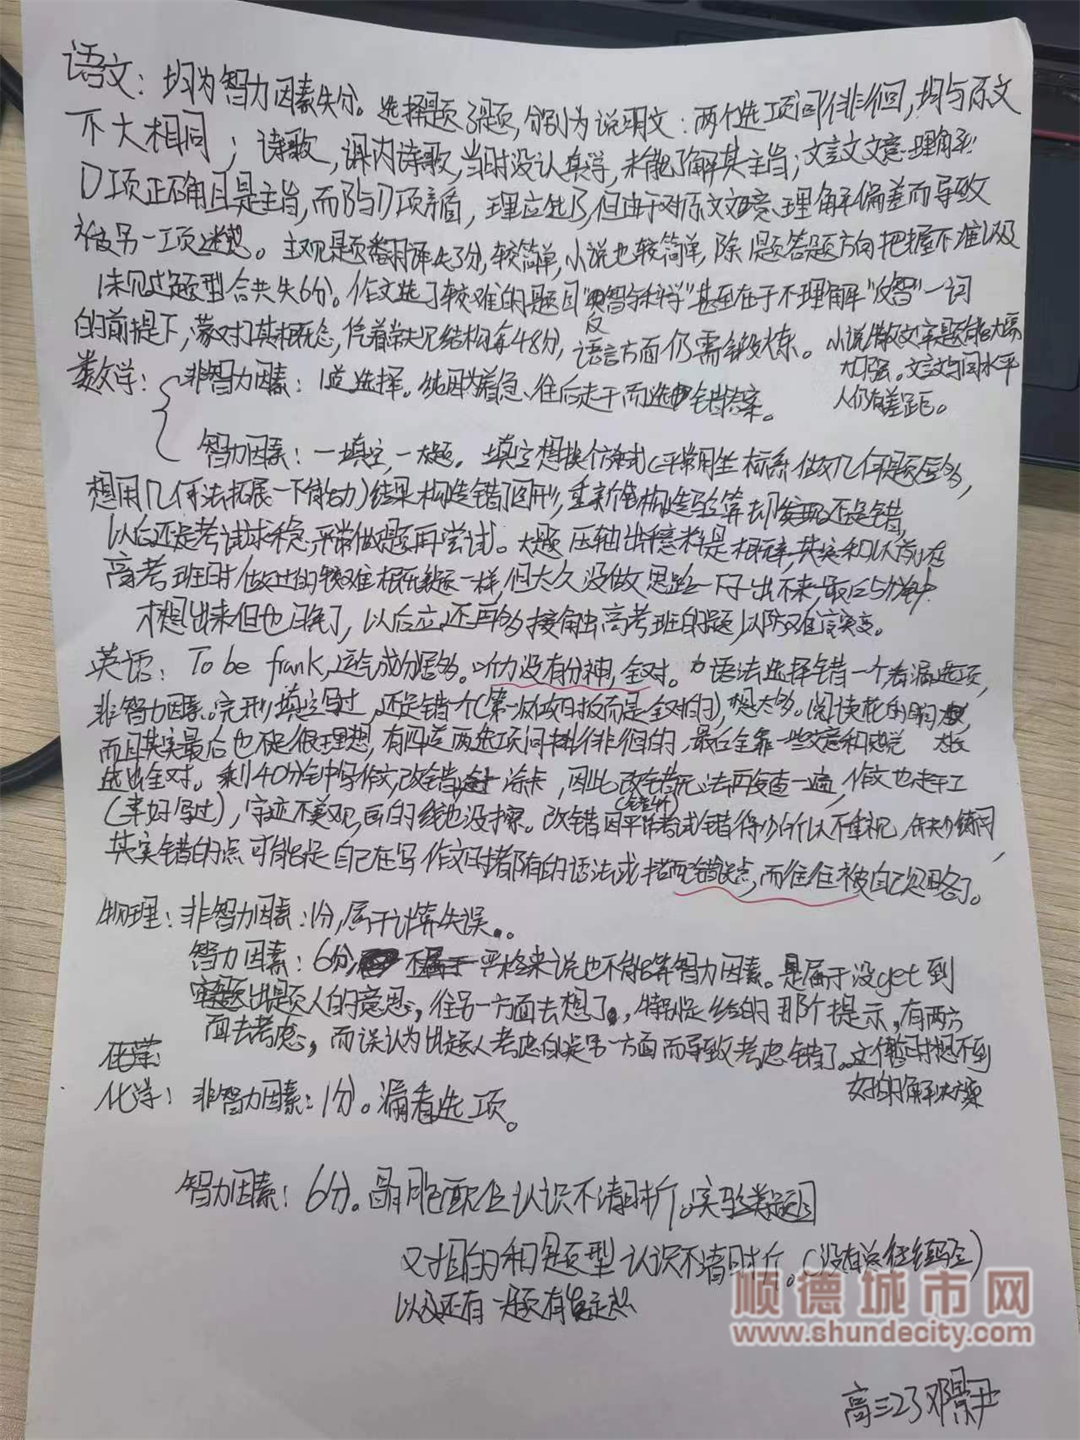 语文：均为智力因素失分。选择题3题，分别为说明文：两个选项间徘徊，均与原文
不大相同；诗歌，课内诗歌，当时没认真学，未能了解其主旨；文言文文意理解，
D项正确且是主旨，而B与D项矛盾，理应选B，但由于对原文文意理解偏差而导致
被另一项迷惑。主观题翻译失3分，较简单，小说也较简单，除1题答题方向把握不准以及
1未见过题型合共失6分。作文选了较难的题目 甚至在于不理解 一词
的前提下，蒙对了其概念，凭着常见结构拿48分，语言方面仍需锻炼。
小说散文字题能力
加强。文言与同水平
人仍有差距。
数学：非智力因素：1道选择。纯因为着急、往后走于而选错答案。
智力因素：一填空，一大题。填空想换个方式（平常用坐标系做几何题居多，
想用几何法拓展一下能力）结果构造错了图形，重新构造验算却发现还是错，
以后还是考试求稳，平常做题再尝试。大题压轴出意料是概率，其实和以前在
高考班时做过的较难概率题一样，但太久没做思路一下子出不来最后5分钟
才想出来但也晚了，以后应还再多接触高考班的题以防难言突变。
英语：To be frank，运气成分居多。听力没有分神，全对。语法选择错一个，看漏选项，
非智力因素。完形填空写过，还是错一个（第一次项目报而是全对的），想太多。阅读花的时间
而且其实最后也不是很理想，有四道两选项间徘徊的，最后全靠一些文意和
选出全对。剩40分钟写作文，改错，涂卡，因此改错无法再复查一遍，作文也赶工
（幸好写过），字迹不美观，画的线也没擦。改错因平常考试错得少所以不重视，缺少练习，
其实错的点可能是自己在写作文时都有的语法或搭配错点，而往往被自己忽略了。
物理：非智力因素：1分，属于计算失误。
智力因素：6分，严格来说也不能算智力因素。是属于没get到
出题人的意思，往另一方面去想了。特别是给的那个提示，有两方
面去考虑，而误认为出题人考虑的是另一方面而导致考虑错了。这个暂时想不到
好的解决方案
化学：非智力因素：1分。漏看选项。
智力因素：6分。晶胞配位认识不清晰。实验类题目
对目的和题型认识不清晰。（没有总结经验）
以及还有一题有
高三23邓景尹
顺德城市网
www.shundecity.com